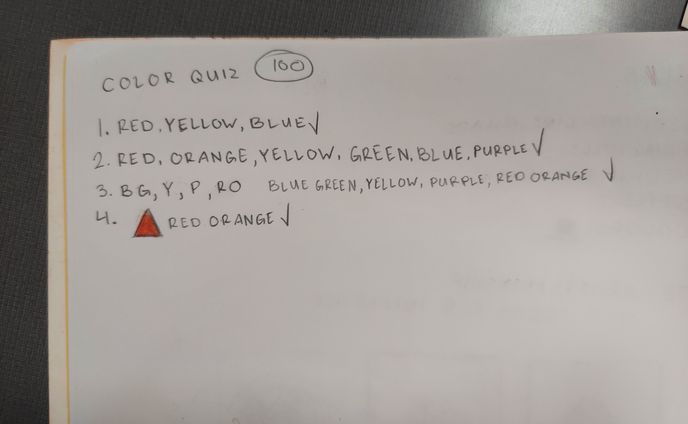 COLOR QUIZ 100
1. RED, YELLOW, BLUE
2. RED, ORANGE, YELLOW, GREEN, BLUE, PURPLE
3. BG, Y, P, RO BLUE GREEN, YELLOW, PURPLE, RED ORANGE
4. RED ORANGE